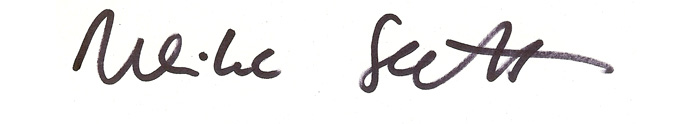 Mike Scott